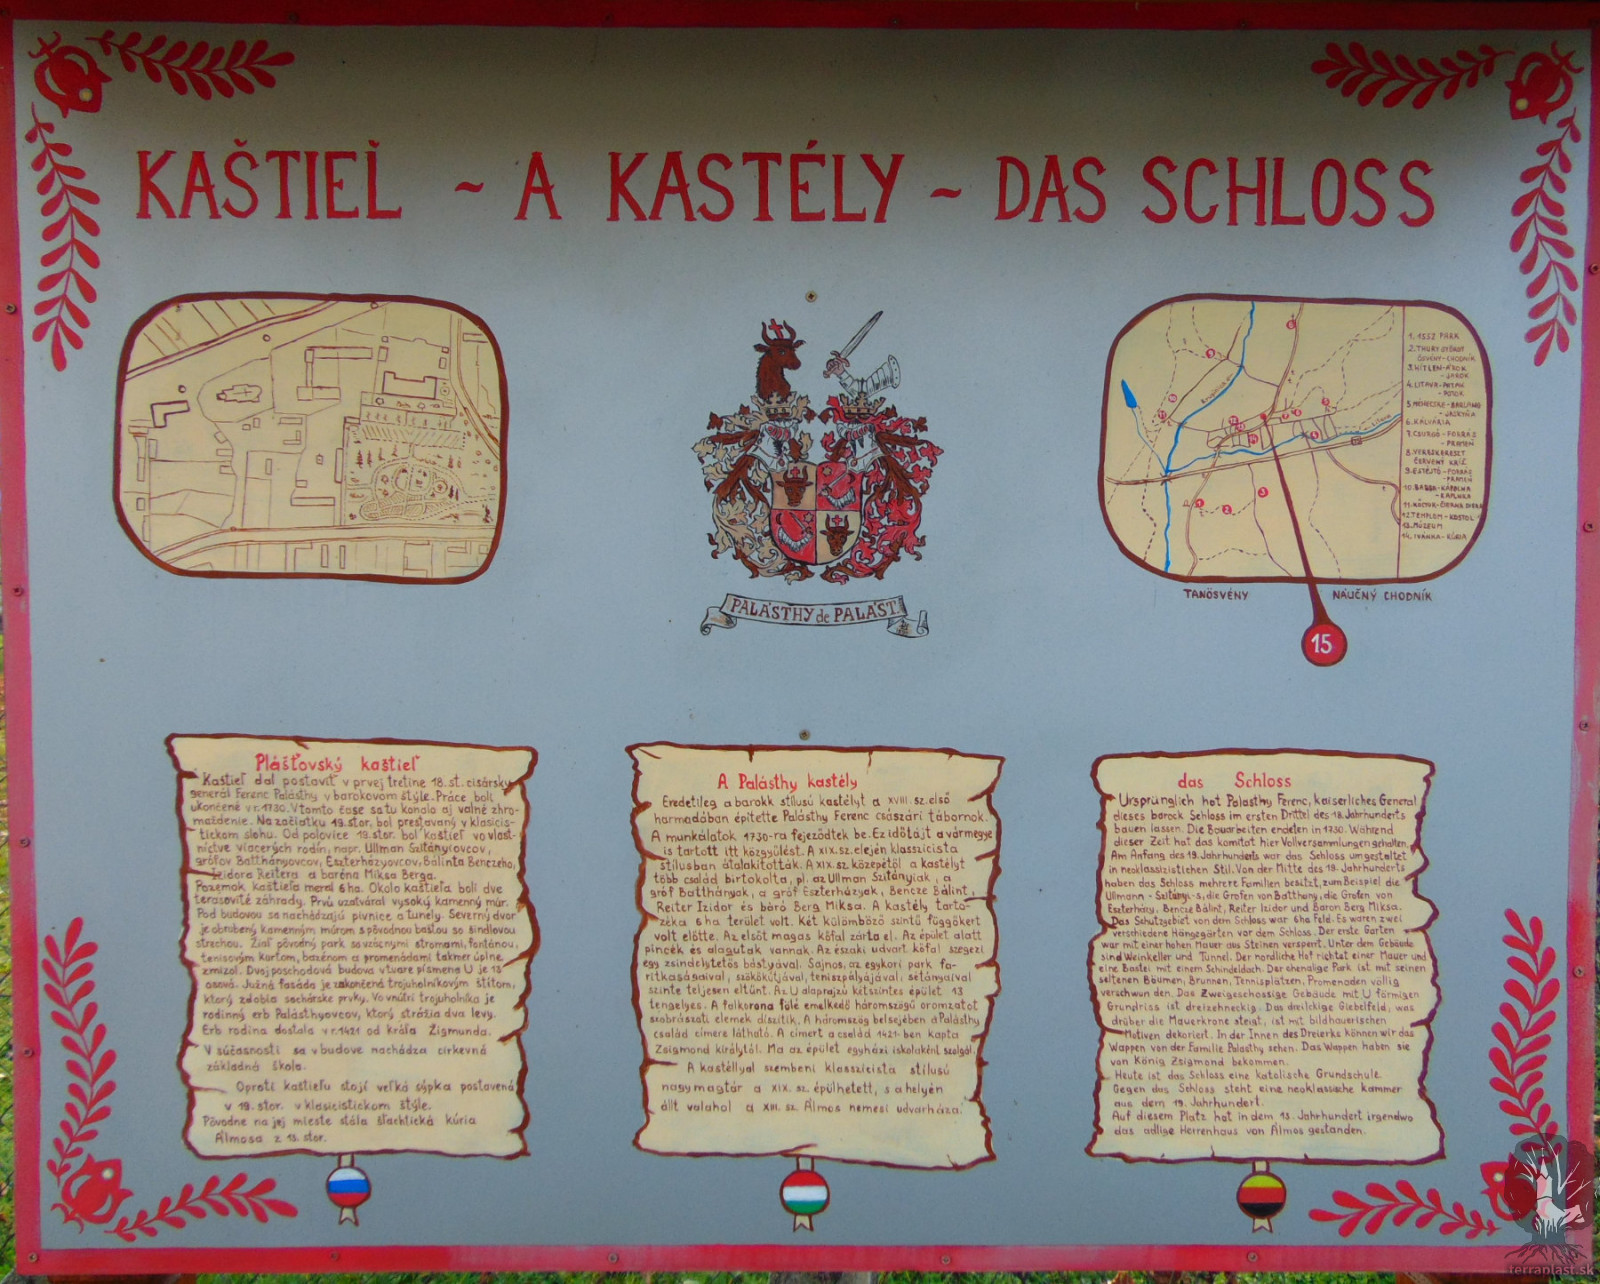 KAŠTIEĽ ~ A KASTÉLY ~ DAS SCHLOSS
PALÁSTHY de PALÁST.
1. 1552 PARK
2. THURY GYÖRGY
ÖSVÉNY-CHODNÍK
4. LITAVA-PATAK
- POTOK
- JASKYŇA
6. KÁLVÁRIA
7. CSURGÓ-FORRÁS
- PRAMEŇ
8. VERESKERESZT
ČERVENÝ KRÍŽ
- PRAMEŇ
- KAPLNKA
12. TEMPLOM - KOSTOL
13. MÚZEUM
14. IVÁNKA - KÚRIA
TANÖSVÉNY NÁUČNÝ CHODNÍK
15
Plášťovský kaštieľ
Kaštieľ dal postaviť v prvej tretine 18. st. cisársky
generál Ferenc Palásthy v barokovom štýle. Práce boli
ukončené v r. 1730. V tomto čase sa tu konalo aj valné zhro-
maždenie. Na začiatku 19. stor. bol prestavaný v klasicis-
tickom slohu. Od polovice 19. stor. bol kaštieľ vo vlast-
níctve viacerých rodín, napr. Ullman Szitányiovcov,
grófov Batthányovcov, Eszterházyovcov, Bálinta Benczeho,
Izidora Reitera a baróna Miksa Berga.
Pozemok kaštieľa meral 6 ha. Okolo kaštieľa boli dve
terasovité záhrady. Prvú uzatváral vysoký kamenný múr.
Pod budovou sa nachádzajú pivnice a tunely. Severný dvor
je obrubený kamenným múrom s pôvodnou baštou so šindľovou
strechou. Žiaľ pôvodný park so vzácnymi stromami, fontánou,
tenisovým kortom, bazénom a promenádami takmer úplne
zmizol. Dvojposchodová budova v tvare písmena U je 13
osová. Južná fasáda je zakončená trojuholníkovým štítom,
ktorý zdobia sochárske prvky. Vo vnútri trojuholníka je
rodinný erb Palásthyovcov, ktorý strážia dva levy.
Erb rodina dostala v r. 1421 od kráľa Žigmunda.
V súčasnosti sa v budove nachádza cirkevná
základná škola.
Oproti kaštieľu stojí veľká sýpka postavená
v 19. stor. v klasicistickom štýle.
Pôvodne na jej mieste stála šľachtická kúria
Álmosa z 13. stor.
A Palásthy kastély
Eredetileg a barokk stílusú kastélyt a XVIII. sz. első
harmadában építette Palásthy Ferenc császári tábornok.
A munkálatok 1730-ra fejeződtek be. Ez időtájt a vármegye
is tartott itt közgyűlést. A XIX. sz. elején klasszicista
stílusban átalakították. A XIX. sz. közepétől a kastélyt
több család birtokolta, pl. az Ullman Szitányiak, a
gróf Batthányak, a gróf Eszterházyak, Bencze Bálint,
Reiter Izidor és báró Berg Miksa. A kastély tarto-
zéka 6 ha terület volt. Két különböző szintű függőkert
volt előtte. Az elsőt magas kőfal zárta el. Az épület alatt
pincék és alagutak vannak. Az északi udvart kőfal szegezi
egy zsindelytetős bástyával. Sajnos, az egykori park fa-
ritkaságaival, szökőkútjával, teniszpályájával, sétányaival
szinte teljesen eltűnt. Az U alaprajzú kétszintes épület 13
tengelyes. A falkorona fölé emelkedő háromszögű oromzatot
szobrászati elemek díszítik. A háromszög belsejében a Palásthy
család címere látható. A címert a család 1421-ben kapta
Zsigmond királytól. Ma az épület egyházi iskolaként szolgál.
A kastéllyal szembeni klasszicista stílusú
nagy magtár a XIX. sz. épülhetett, s a helyén
állt valahol a XIII. sz. Álmos nemesi udvarháza.
das Schloss
Ursprünglich hat Palasthy Ferenc, kaiserliches General
dieses barock Schloss im ersten Drittel des 18. Jahrhunderts
bauen lassen. Die Bauarbeiten endeten in 1730. Während
dieser Zeit hat das komitat hier Vollversammlungen gehalten.
Am Anfang des 19. Jahrhunderts war das Schloss umgestaltet
in neoklassizistichen Stil. Von der Mitte des 19. Jahrhunderts
haben das Schloss mehrere Familien besitzt, zum Beispiel die
Ullmann - Szitányi-s, die Grofen von Batthony, die Grofen von
Eszterházy, Bencze Bálint, Reiter Izidor und Baron Berg Miksa.
Das Schutzgebiet von dem Schloss war 6 ha Feld. Es waren zwei
verschiedene Hängegärten vor dem Schloss. Der erste Garten
war mit einer hohen Mauer aus Steinen versperrt. Unter dem Gebäude
sind Weinkeller und Tunnel. Der nordliche Hof richtet einer Mauer und
eine Bastei mit einem Schindeldach. Der ehemalige Park ist mit seinen
seltenen Bäumen, Brunnen, Tennisplätzen, Promenaden völlig
verschwunden. Das Zweigeschossige Gebäude mit U förmigen
Grundriss ist dreizehneckig. Das dreickige Giebelfeld, was
drüber die Mauerkrone steigt, ist mit bildhauerischen
Motiven dekoriert. In der Innen des Dreiecks können wir das
Wappen von der Familie Palasthy sehen. Das Wappen haben sie
von König Zsigmond bekommen.
Heute ist das Schloss eine katolische Grundschule.
Gegen das Schloss steht eine neoklassische kammer
aus dem 19. Jahrhundert.
Auf diesem Platz hat in dem 13. Jahrhundert irgendwo
das adlige Herrenhaus von Álmos gestanden.
terranlast.sk